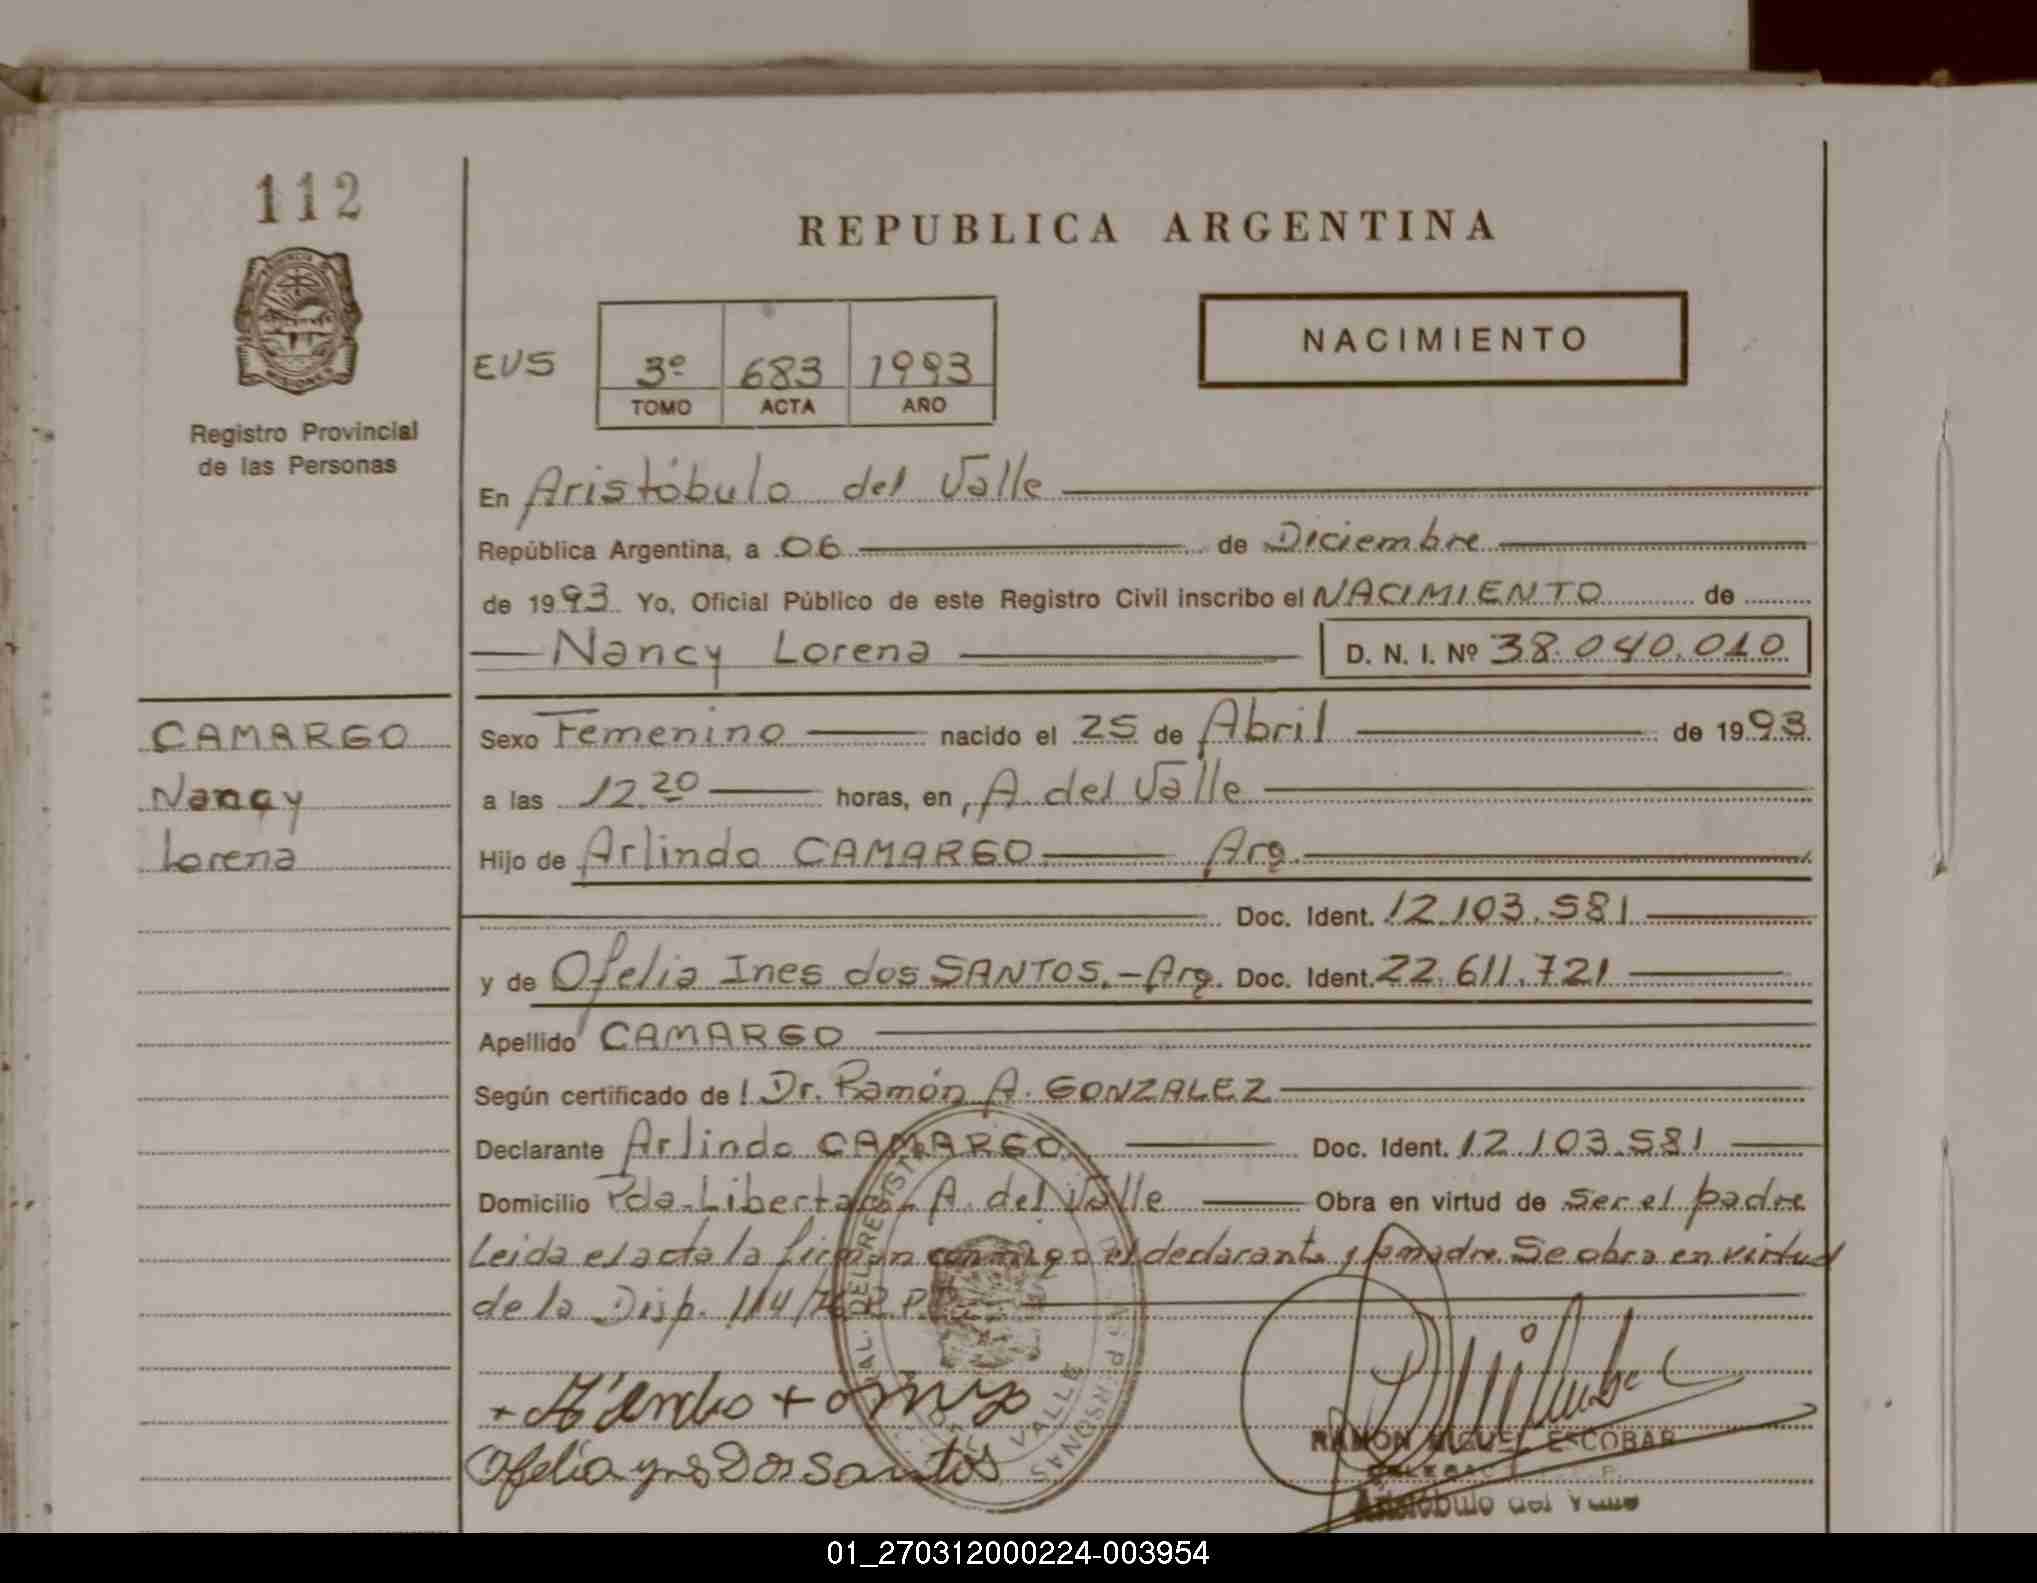 112
REPUBLICA ARGENTINA
NACIMIENTO
EVS 3º 683 1993
TOMO ACTA AÑO
Registro Provincial
de las Personas
En Aristóbulo del Valle
República Argentina, a 06 de Diciembre
de 1993 Yo, Oficial Público de este Registro Civil inscribo el NACIMIENTO de
Nancy Lorena D. N. I. Nº 38.040.010
CAMARGO
Nancy
Lorena
Sexo Femenino nacido el 25 de Abril de 1993
a las 12.20 horas, en A del Valle
Hijo de Arlindo CAMARGO Arg.
Doc. Ident. 12.103.581
y de Ofelia Ines dos SANTOS.- Arg. Doc. Ident. 22.611.721
Apellido CAMARGO
Según certificado de Dr. Ramón A. GONZALEZ
Declarante Arlindo CAMARGO Doc. Ident. 12.103.581
Domicilio Pda-Libertad - A. del Valle Obra en virtud de ser el padre
Leida el acta la firman conmigo el declarante y la madre. Se obra en virtud
de la Disp. 114/
Ofelia ynes Dos Santos
VALLE
RAMON MIGUEL ESCOBAR
Aristóbulo del Valle
01_270312000224-003954